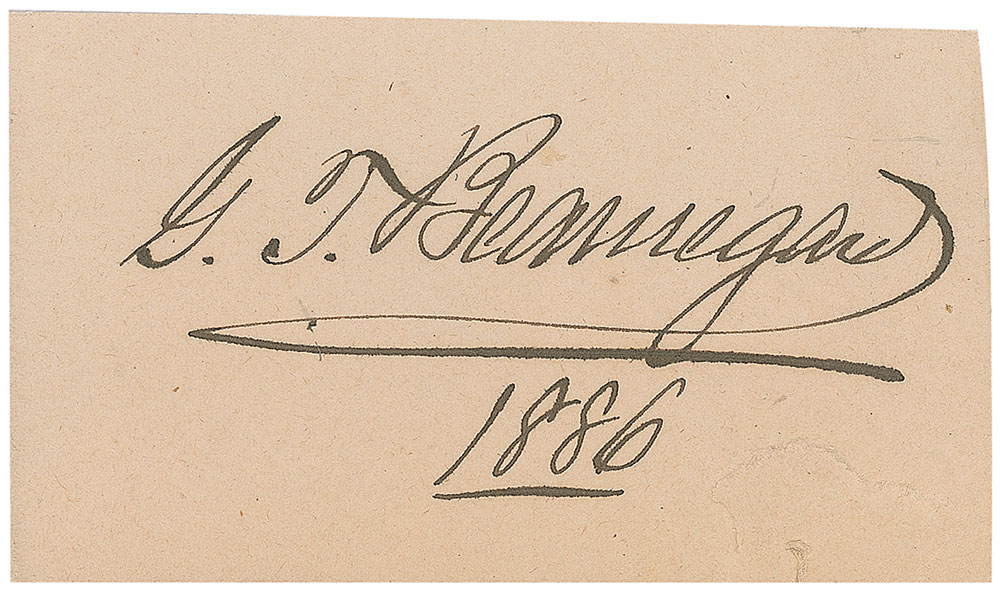 G. T. Beauregard
1886